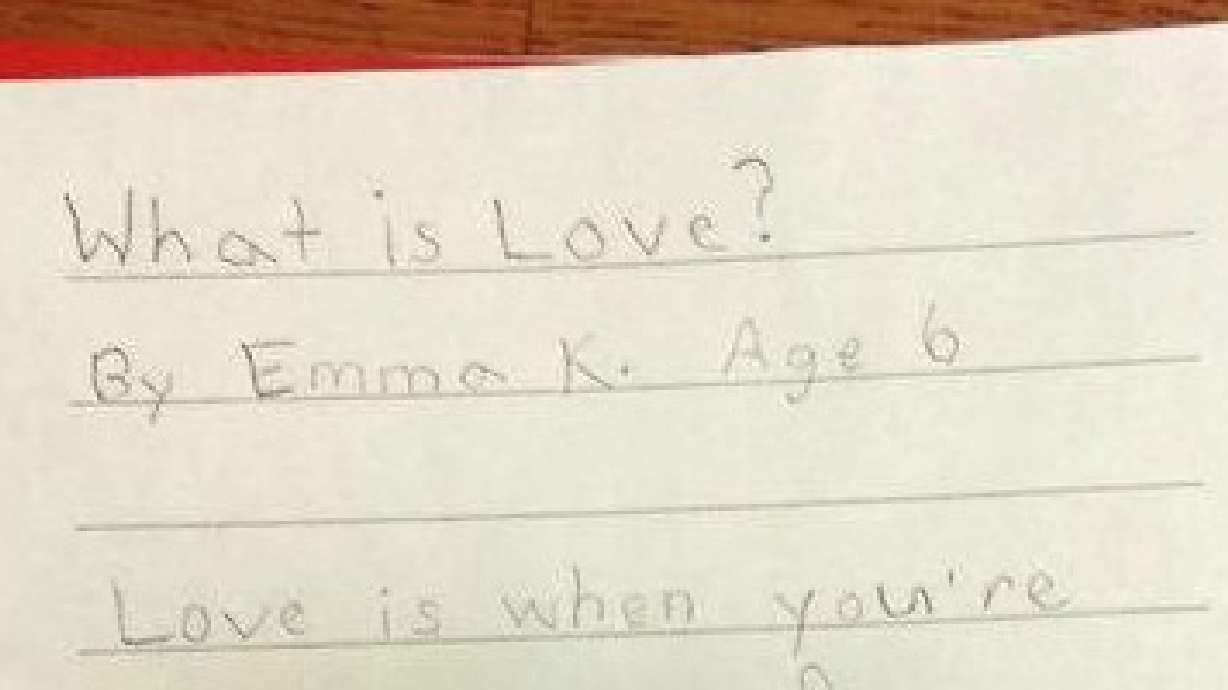 What is Love?
By Emma K. Age 6
Love is when you're